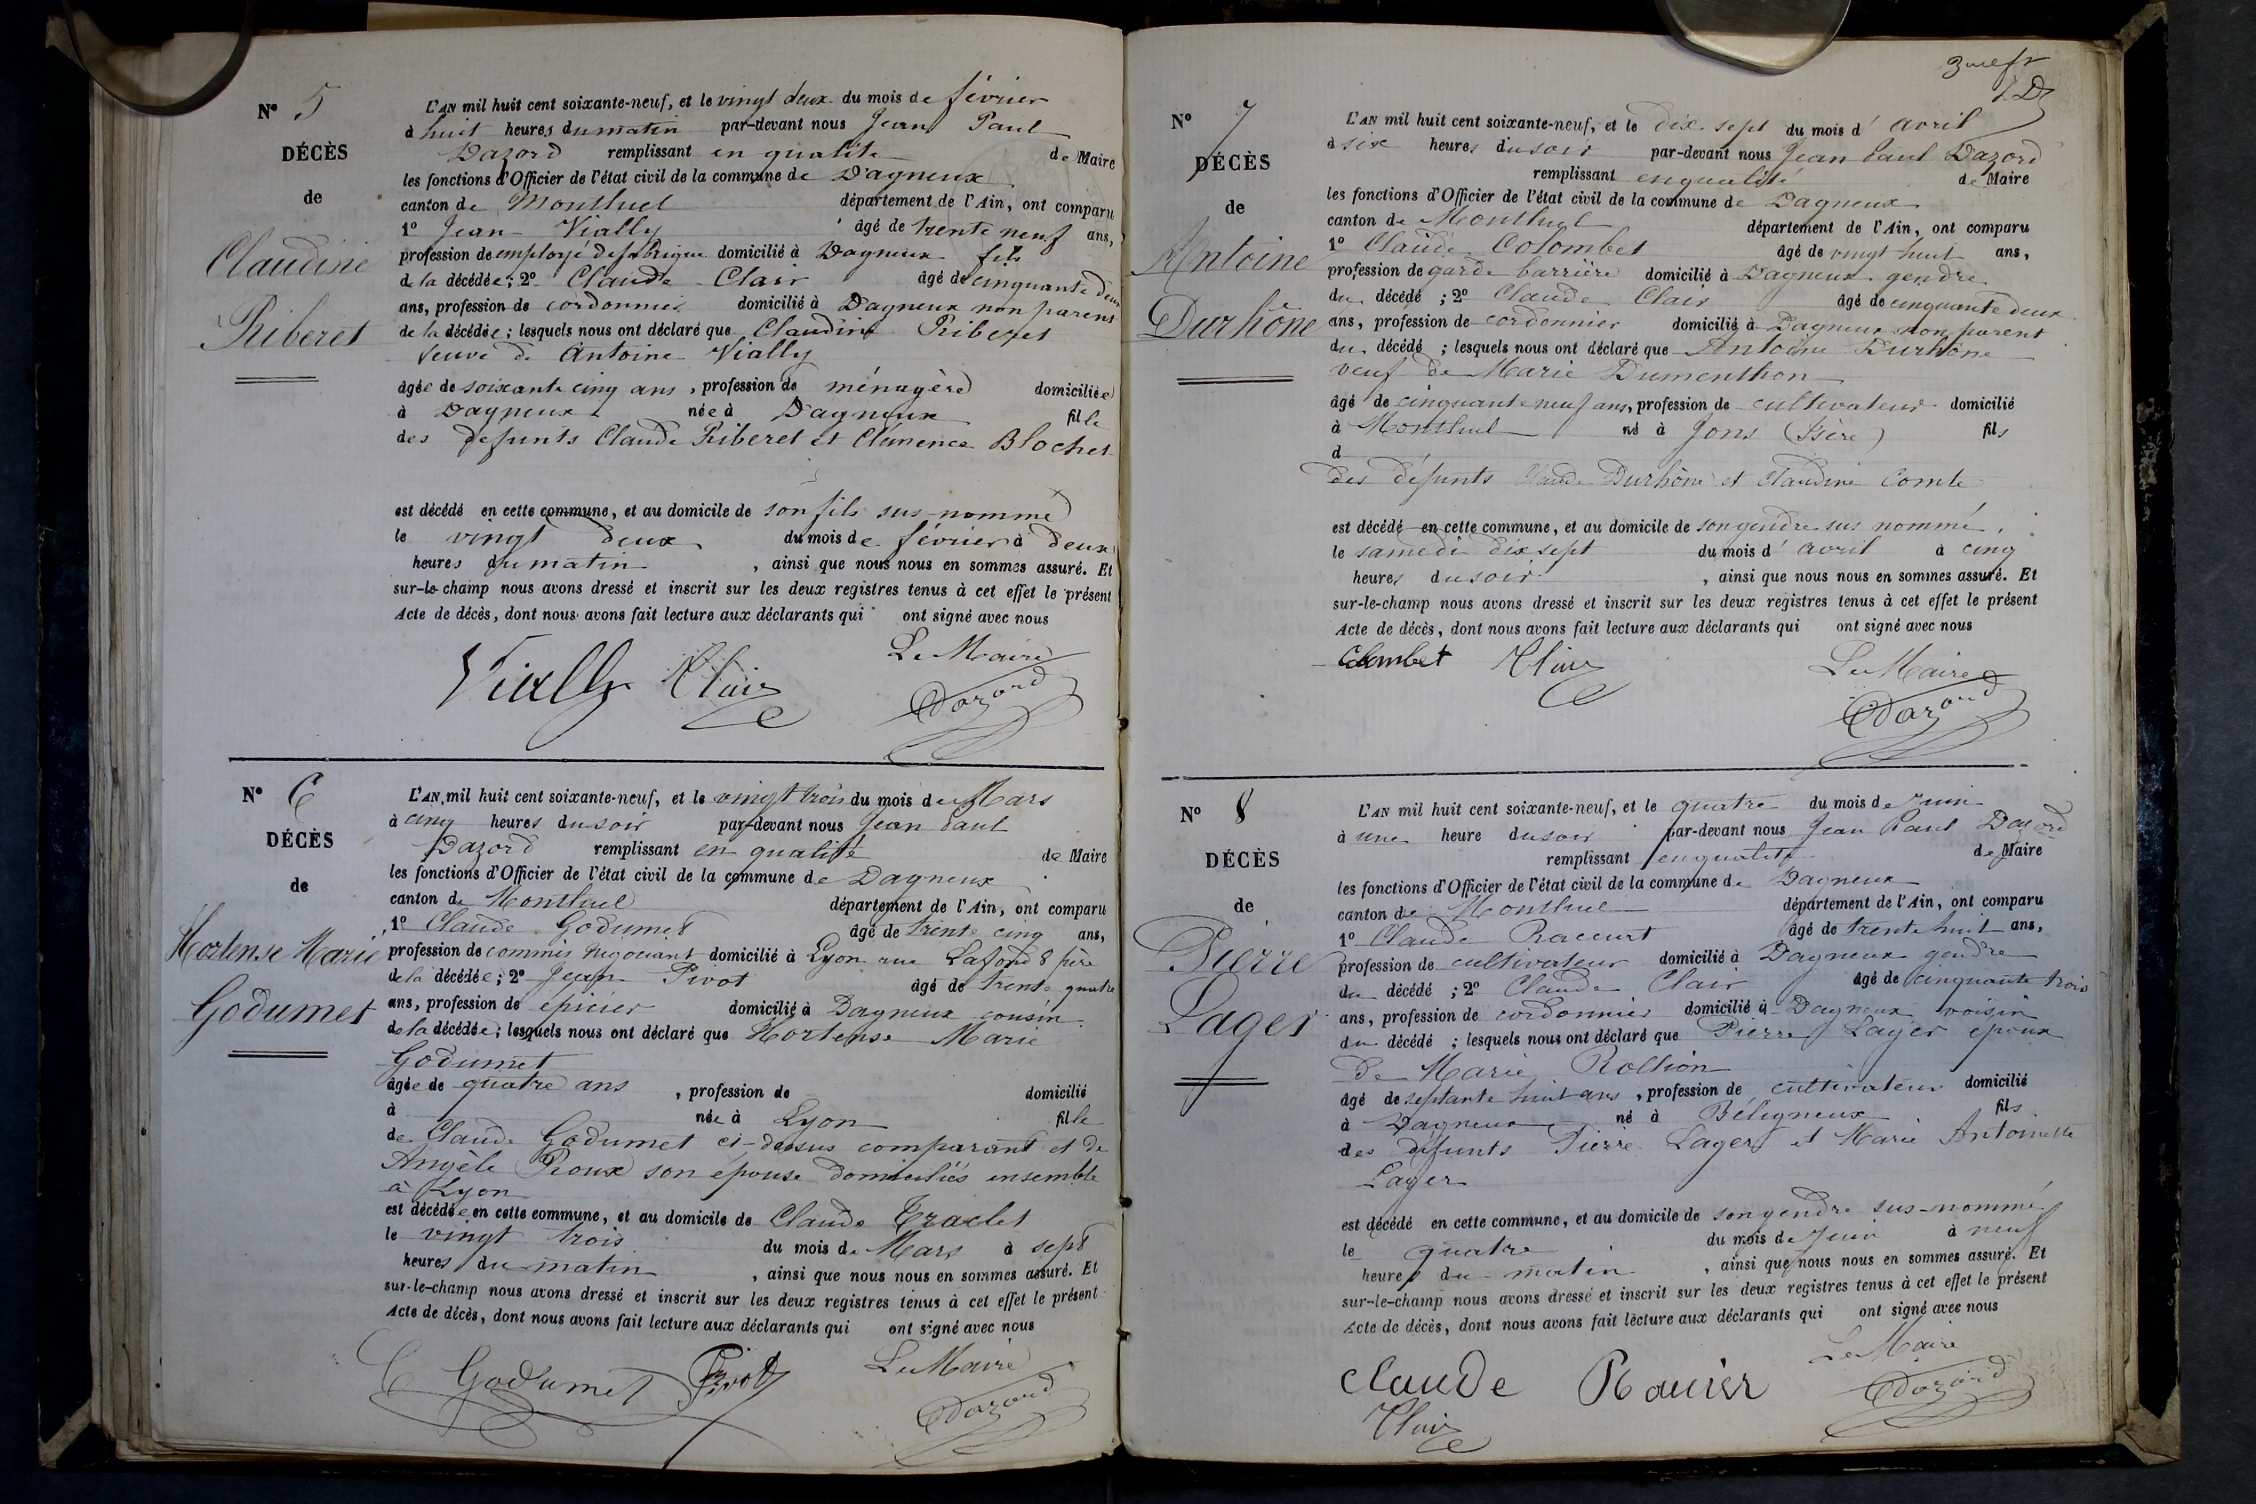 N° 5
DÉCÈS
de
Claudine
Riberet
L'AN mil huit cent soixante-neuf, et le vingt deux du mois de février
à huit heures du matin par-devant nous Jean Paul
Dazord remplissant en qualité de Maire
les fonctions d'Officier de l'état civil de la commune de Dagneux
canton de Montluel département de l'Ain, ont comparu
1° Jean Vially âgé de trente neuf ans,
profession de employé de fabrique domicilié à Dagneux fils
de la décédée; 2° Claude Clair âgé de cinquante deux
ans, profession de cordonnier domicilié à Dagneux non parent
de la décédée; lesquels nous ont déclaré que Claudine Riberet
veuve de Antoine Vially
âgée de soixante cinq ans, profession de ménagère domiciliée
à Dagneux née à Dagneux fille
des defunts Claude Riberet et Clémence Blochet
est décédé en cette commune, et au domicile de son fils sus-nommé
le vingt deux du mois de février à deux
heures du matin, ainsi que nous nous en sommes assuré. Et
sur-le-champ nous avons dressé et inscrit sur les deux registres tenus à cet effet le présent
Acte de décès, dont nous avons fait lecture aux déclarants qui ont signé avec nous
Le Maire
Vially Clair Dazord
N° 6
DÉCÈS
de
Hortense Marie
Godumet
L'AN mil huit cent soixante-neuf, et le vingt trois du mois de Mars
à cinq heures du soir par-devant nous Jean Paul
Dazord remplissant en qualité de Maire
les fonctions d'Officier de l'état civil de la commune de Dagneux
canton de Montluel département de l'Ain, ont comparu
1° Claude Godumet âgé de trente cinq ans,
profession de commis négociant domicilié à Lyon rue Lafond 8 père
de la décédée; 2° Jean Pivot âgé de trente quatre
ans, profession de épicier domicilié à Dagneux cousin
de la décédée; lesquels nous ont déclaré que Hortense Marie
Godumet
âgée de quatre ans, profession de domicilié
à née à Lyon fille
de Claude Godumet ci-dessus comparant et de
Angèle Roux son épouse domiciliés ensemble
à Lyon
est décédée en cette commune, et au domicile de Claude Traclet
le vingt trois du mois de Mars à sept
heures du matin, ainsi que nous nous en sommes assuré. Et
sur-le-champ nous avons dressé et inscrit sur les deux registres tenus à cet effet le présent
Acte de décès, dont nous avons fait lecture aux déclarants qui ont signé avec nous
Le Maire
C Godumet Pivot Dazord
N° 7
DÉCÈS
de
Antoine
Durhône
L'AN mil huit cent soixante-neuf, et le dix-sept du mois d'avril
à six heures du soir par-devant nous Jean Paul Dazord
remplissant en qualité de Maire
les fonctions d'Officier de l'état civil de la commune de Dagneux
canton de Montluel département de l'Ain, ont comparu
1° Claude Colombet âgé de vingt huit ans,
profession de garde barrière domicilié à Dagneux gendre
du décédé; 2° Claude Clair âgé de cinquante deux
ans, profession de cordonnier domicilié à Dagneux non parent
du décédé; lesquels nous ont déclaré que Antoine Durhône
veuf de Marie Dumenthon
âgé de cinquante neuf ans, profession de cultivateur domicilié
à Montluel né à Jons (Isère) fils
d
des défunts Claude Durhône et Claudine Comte
est décédé en cette commune, et au domicile de son gendre sus nommé,
le samedi dix sept du mois d'avril à cinq
heures du soir, ainsi que nous nous en sommes assuré. Et
sur-le-champ nous avons dressé et inscrit sur les deux registres tenus à cet effet le présent
Acte de décès, dont nous avons fait lecture aux déclarants qui ont signé avec nous
Colombet Clair Le Maire
Dazord
N° 8
DÉCÈS
de
Pierre
Lager
L'AN mil huit cent soixante-neuf, et le quatre du mois de Juin
à une heure du soir par-devant nous Jean Paul Dazord
remplissant en qualité de Maire
les fonctions d'Officier de l'état civil de la commune de Dagneux
canton de Montluel département de l'Ain, ont comparu
1° Claude Raccurt âgé de trente huit ans,
profession de cultivateur domicilié à Dagneux gendre
du décédé; 2° Claude Clair âgé de cinquante trois
ans, profession de cordonnier domicilié à Dagneux voisin
du décédé; lesquels nous ont déclaré que Pierre Lager époux
de Marie Rollion
âgé de septante huit ans, profession de cultivateur domicilié
à Dagneux né à Béligneux fils
des défunts Pierre Lager et Marie Antoinette
Lager
est décédé en cette commune, et au domicile de son gendre sus-nommé
le quatre du mois de Juin à neuf
heures du matin, ainsi que nous nous en sommes assuré. Et
sur-le-champ nous avons dressé et inscrit sur les deux registres tenus à cet effet le présent
Acte de décès, dont nous avons fait lecture aux déclarants qui ont signé avec nous
Le Maire
Claude Dazord
Clair